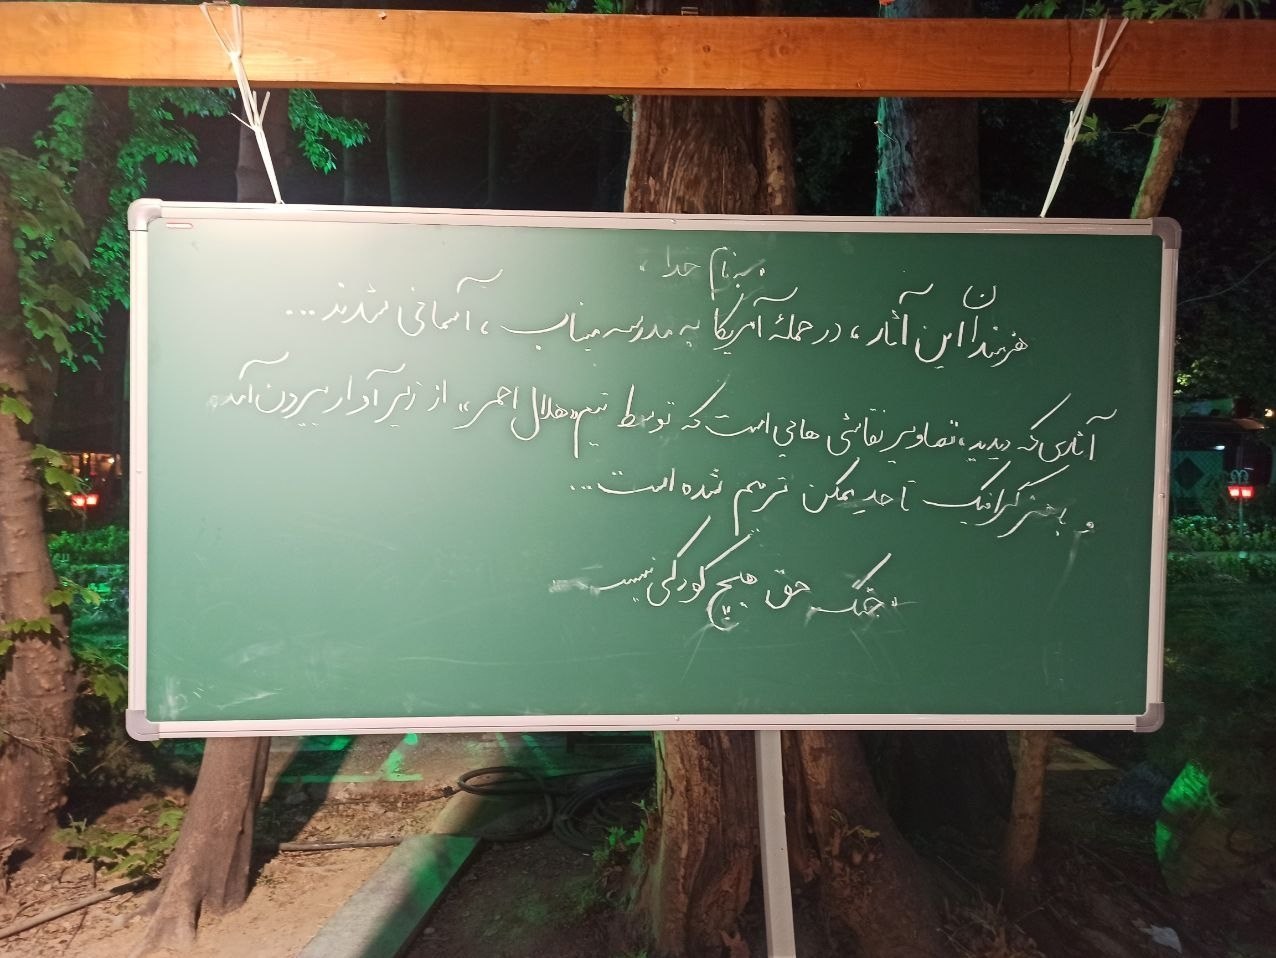 به نام خدا
هنرمندان این آثار، در حملهٔ آمریکا به مدرسه میناب، آسمانی شدند...
آثاری که دیدید، تصاویر نقاشی هایی است که توسط تیم «هلال احمر» از زیر آوار بیرون آمده
و به هنر گرافیک تا حد ممکن ترمیم شده است...
جنگ حق هیچ کودکی نیست